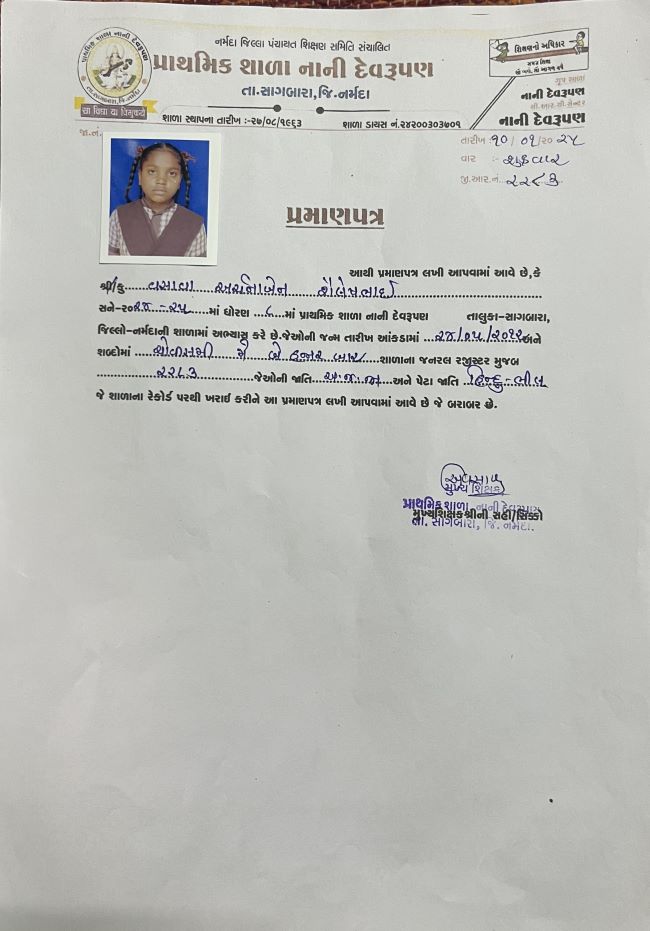 પ્રાથમિક શાળા નાની દેવરૂપણ
તા.સાગબારા,જિ.નર્મદા
सा विद्या या विमुक्तये
નર્મદા જિલ્લા પંચાયત શિક્ષણ સમિતિ સંચાલિત
પ્રાથમિક શાળા નાની દેવરૂપણ
તા.સાગબારા,જિ.નર્મદા
શાળા સ્થાપના તારીખ :-૨૭/૦૮/૧૯૬૩ શાળા ડાયસ નં.૨૪૨૦૦૩૦૩૭૦૧
શિક્ષણનો અધિકાર
ગૃપ શાળા
નાની દેવરૂપણ
સી.આર.સી.સેન્ટર
નાની દેવરૂપણ
જા.નં.
તારીખ :-૧૦/ ૦૧/૨૦ ૨૫
વાર :- શુક્રવાર
જી.આર.નં. ૨૨૮૩
પ્રમાણપત્ર
આથી પ્રમાણપત્ર લખી આપવામાં આવે છે,કે
શ્રી/કુ......વસાવા અર્ચનાબેન શૈલેષભાઈ
સને-૨૦૨૪-૨૫....માં ધોરણ ..૮...માં પ્રાથમિક શાળા નાની દેવરૂપણ તાલુકા-સાગબારા,
જિલ્લો-નર્મદાની શાળામાં અભ્યાસ કરે છે.જેઓની જન્મ તારીખ આંકડામાં ...૨૪/૦૫/૨૦૧૨અને
શબ્દોમાં ....ચોવીસમી મે બે હજાર બાર....શાળાના જનરલ રજીસ્ટર મુજબ
.............૨૨૮૩..................જેઓની જાતિ ...અ.જ.જા...અને પેટા જાતિ ..હિન્દુ-ભીલ
જે શાળાના રેકોર્ડ પરથી ખરાઈ કરીને આ પ્રમાણપત્ર લખી આપવામાં આવે છે જે બરાબર છે.
મુખ્ય શિક્ષક
પ્રાથમિક શાળા, નાની દેવરૂપણ
મુખ્યશિક્ષકશ્રીની સહી/સિક્કો
તા. સાગબારા, જિ. નર્મદા.